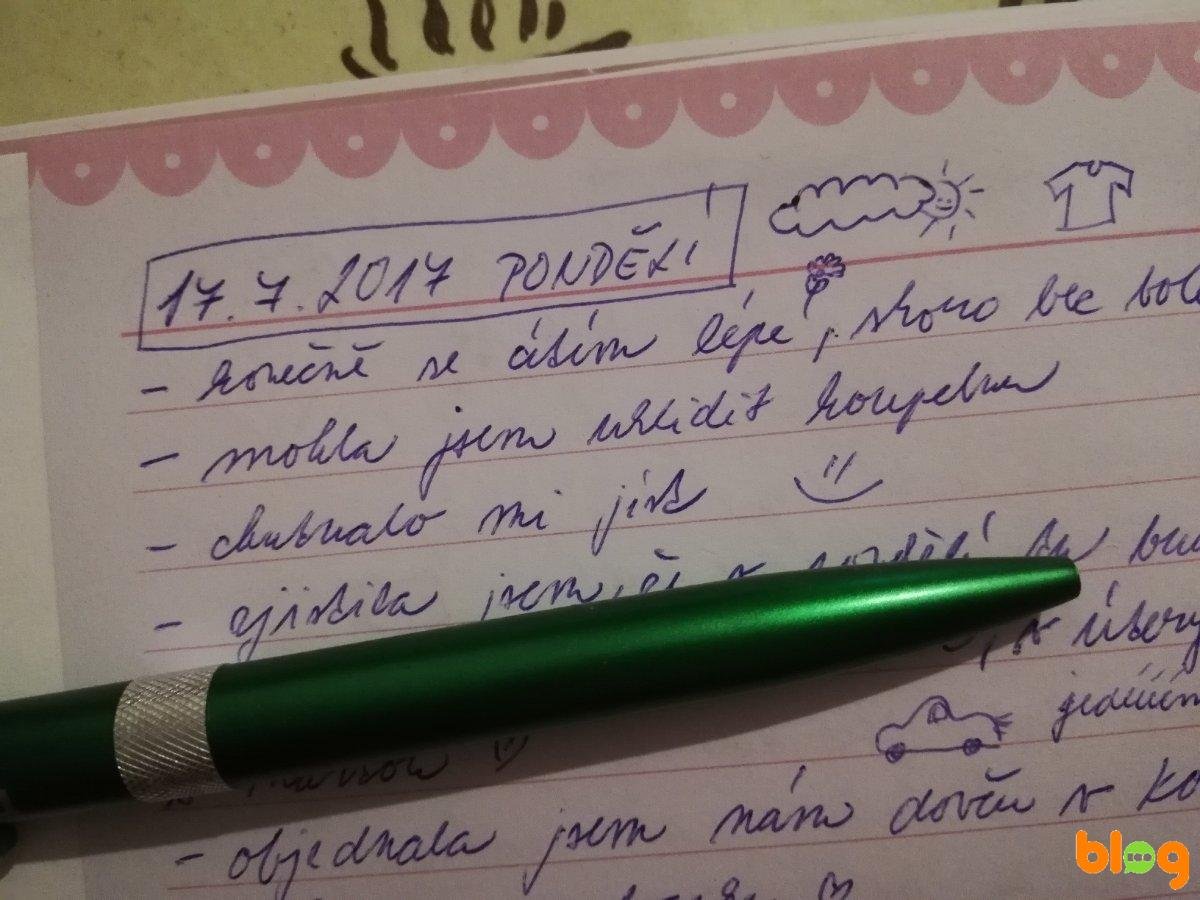 17.7.2017 PONDĚLÍ
- konečně se cítím lépe, skoro bez
- mohla jsem uklidit koupelnu
- chutnalo mi jíst
- zjistila jsem, že v pondělí
, v úterý
- objednala jsem nám dovču v
blog